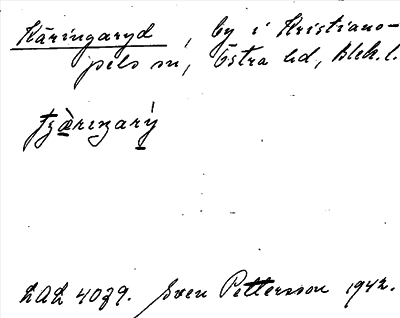 Käringaryd, by i Kristiano-
pels sn, Östra hd, Blek. l.
LAL 4039. Sven Pettersson 1942.